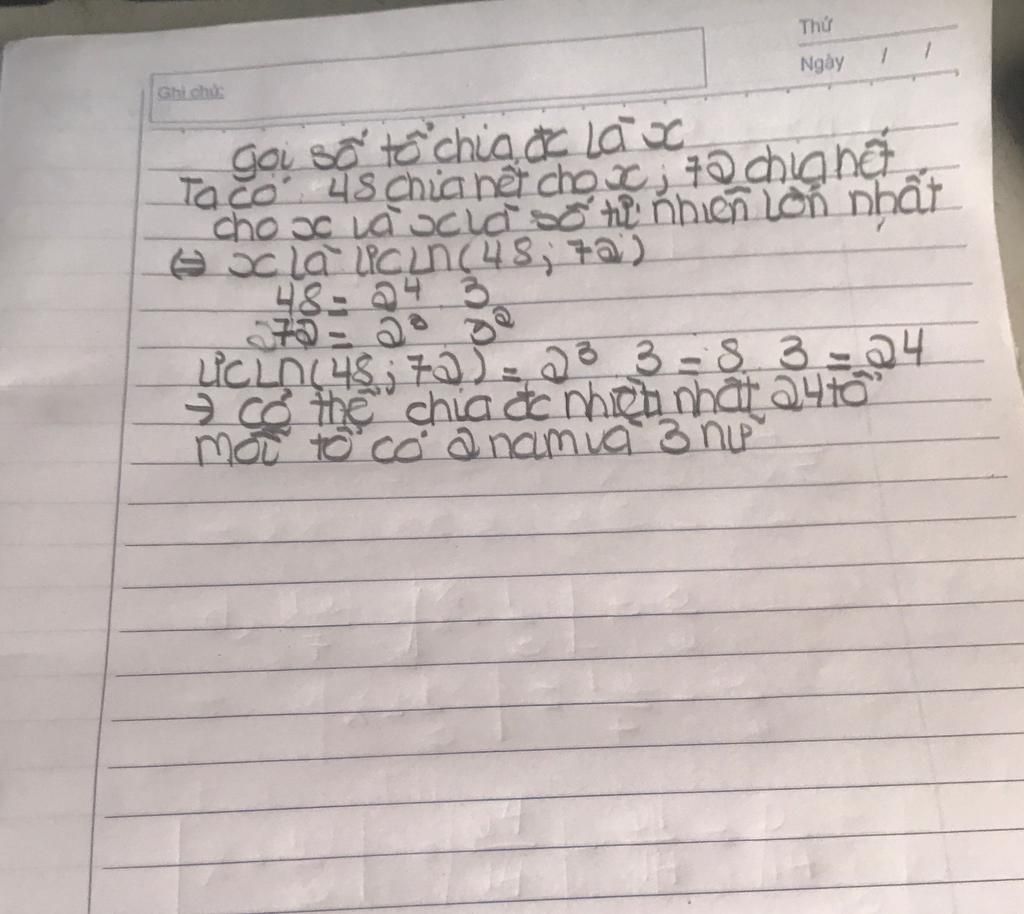 Thứ
Ngày / /
Ghi chú:
gọi số tổ chia đc là x
Ta có: 48 chia hết cho x; 72 chia hết
cho x và x là số tự nhiên lớn nhất
⇔ x là ƯCLN(48; 72)
48 = 2⁴ 3
72 = 2³ 3²
ƯCLN(48; 72) = 2³ 3 = 8 3 = 24
→ có thể chia đc nhiều nhất 24 tổ
mỗi tổ có 2 nam và 3 nữ